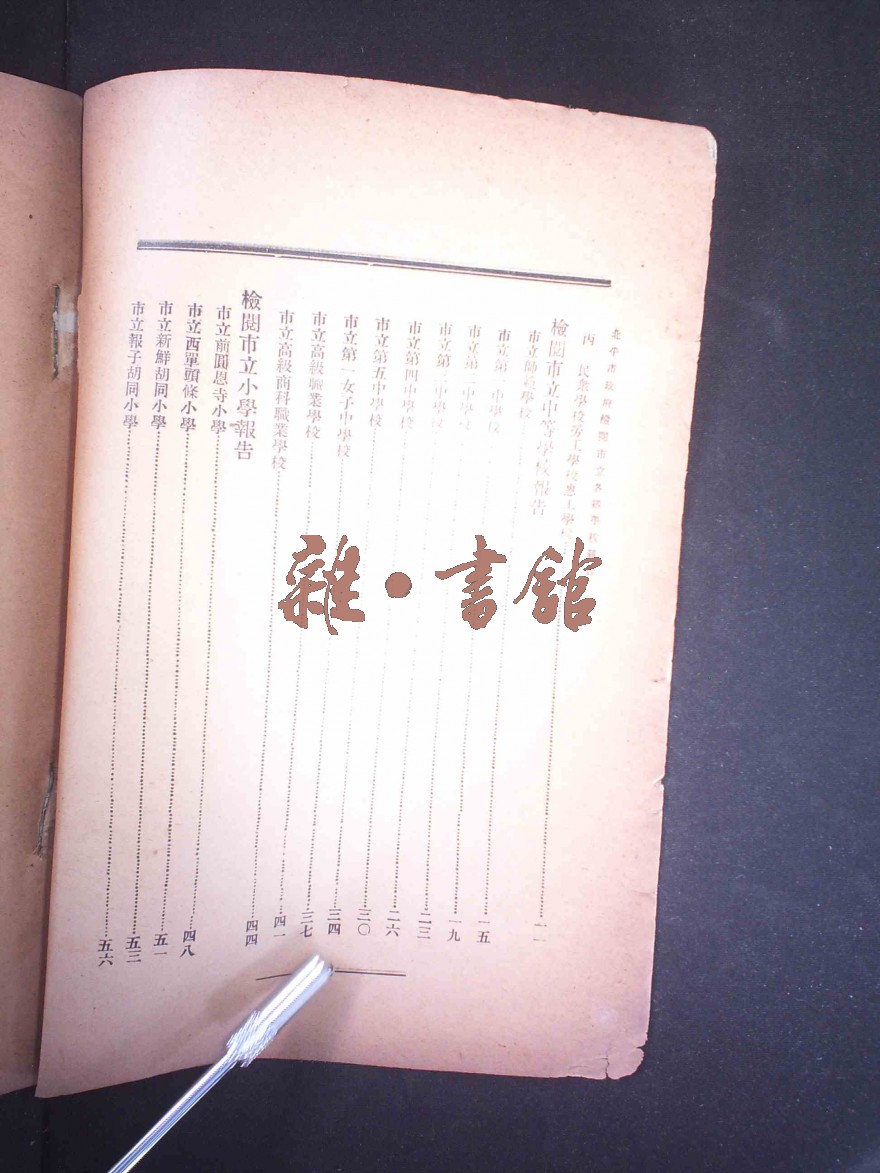 北平市政府檢閱市立各級學校
丙 民衆學校勞工學校惠工學校……一一
檢閱市立中等學校報告
市立師範學校……一五
市立第一中學校……一九
市立第二中學校……二三
市立第三中學校……二六
市立第四中學校……三〇
市立第五中學校……三四
市立第一女子中學校……三七
市立高級職業學校……四一
市立高級商科職業學校……四四
檢閱市立小學報告
市立前圓恩寺小學……四八
市立西單頭條小學……五一
市立新鮮胡同小學……五三
市立報子胡同小學……五六
雜•書館